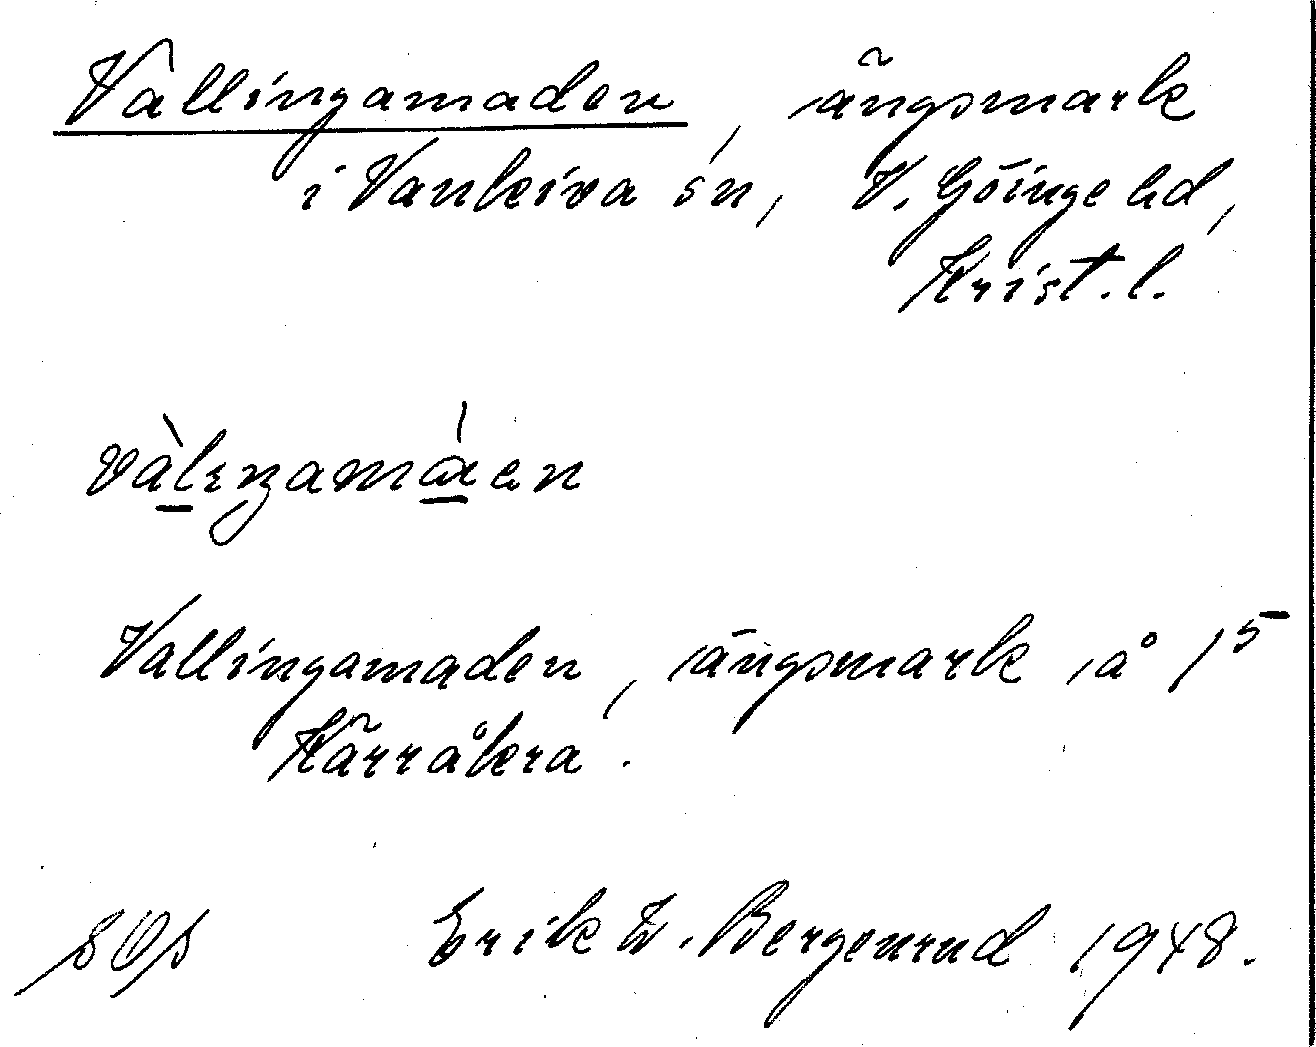 Vallingamaden, ängsmark
i Vankiva sn, V. Göinge hd,
Krist. l.
Vallingamaden, ängsmark å 1⁵
Kärråkra.
Erik W. Bergenrud 1948.